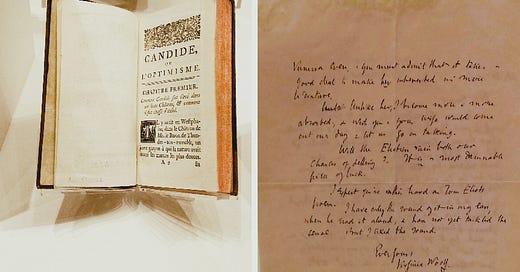 CANDIDE,
OU
L'OPTIMISME.
CHAPITRE PREMIER.
Comment Candide fut élevé dans
un beau Château, & comment
il fut chassé d'icelui.
IL y avait en Westpha-
lie, dans le Château de
Mr. le Baron de Thun-
der-ten-tronckh, un
jeune garçon à qui la nature avait
donné les mœurs les plus douces.
Vanessa Bell. & you must admit that it takes a
good deal to make her interested in mere
literature.
unlike her, I become more & more
absorbed, & wish you & your wife would come
out one day & let us go on talking.
Will the Election ruin both our
chances of selling? It is a most damnable
piece of luck.
I expect you're hard on Tom Eliots
poem. I have only the sound of it in my ears
when he read it aloud, & have not yet tackled the
sense. But I liked the sound.
Ever yours
Virginia Woolf